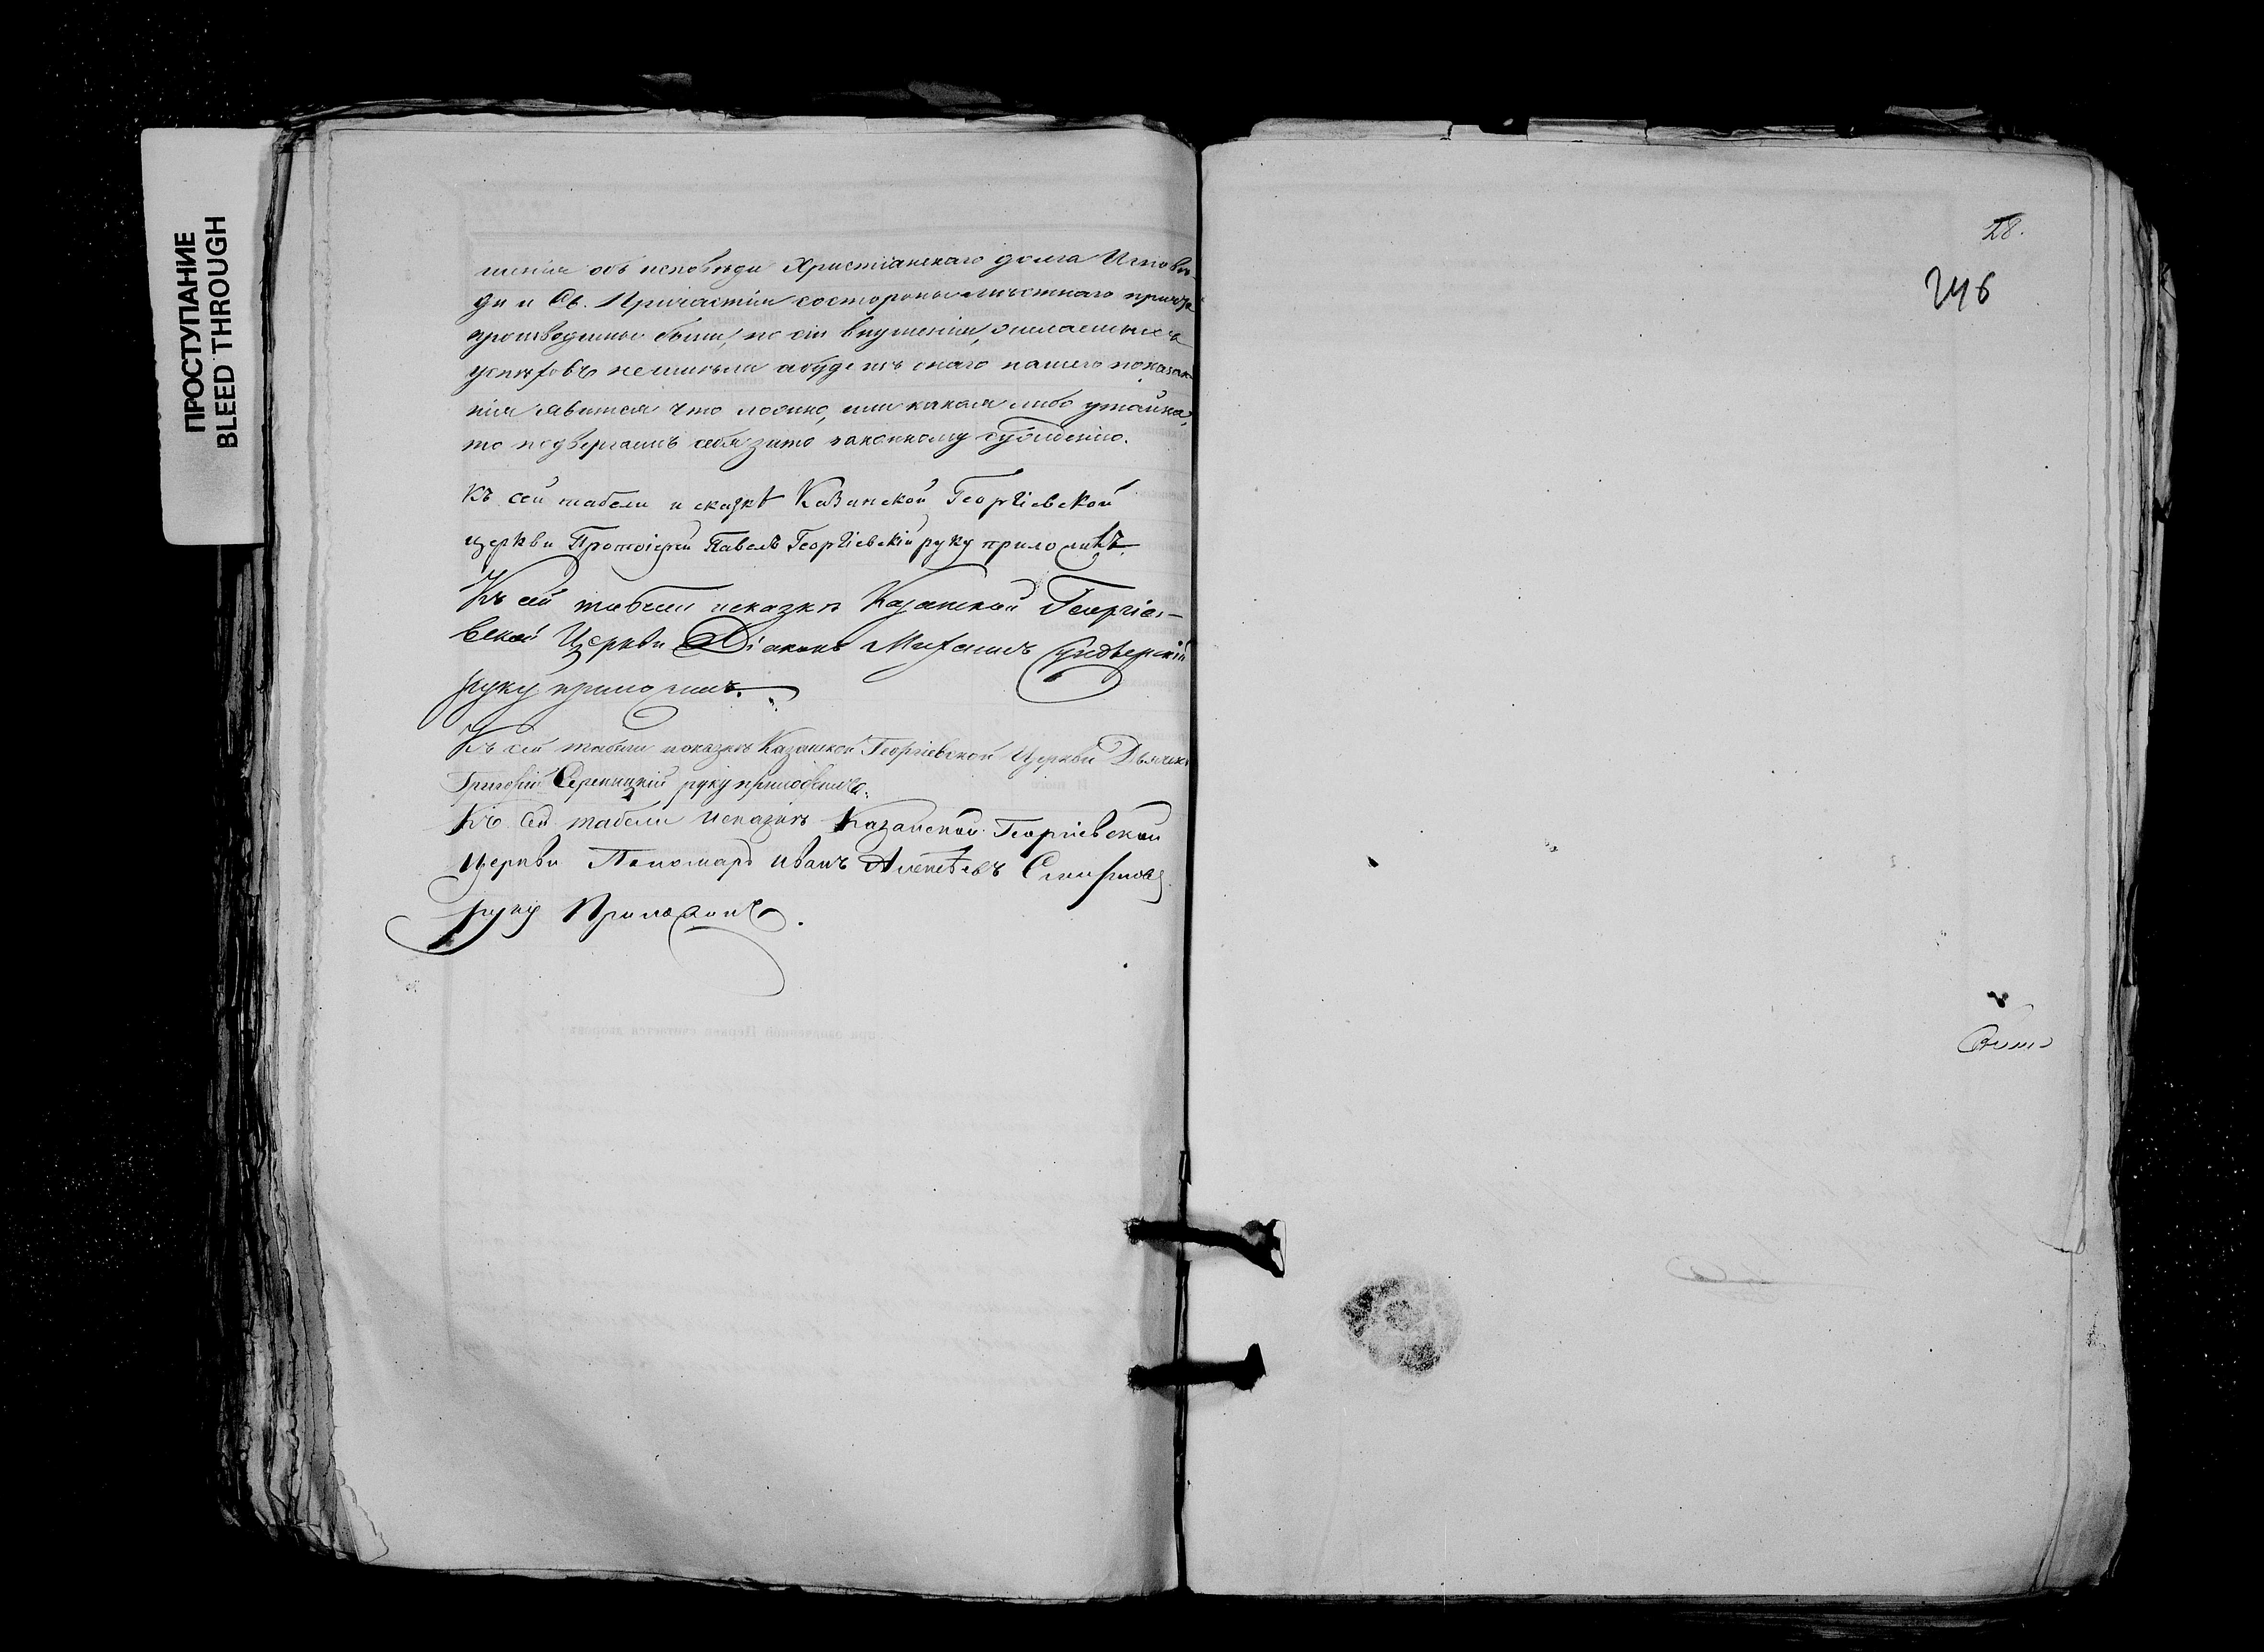 ПРОСТУПАНИЕ
BLEED THROUGH
шенія объ исповѣди Христіанскаго долга Исповѣ-
ди и Св. Причастія состороны мѣстнаго причта
производимы были, но сіи внушенія, желаемыхъ
успѣховъ неимѣли абудетъ снаго нашего показа-
нія явится что ложно, или какая либо утайка,
то подвергаемъ себя зато законному сужденію.
Къ сей табели и сказкѣ Казанской Георгіевской
церкви Протоіерей Павелъ Георгіевскій руку приложилъ.
Къ сей табели исказкѣ Казанской Георгіе-
вской Церкви Діаконъ Михаилъ
руку приложилъ.
Къ сей табели исказкѣ Казанской Георгіевской Церкви Дьячекъ
Григорій руку приложилъ.
Къ Сей табели исказкѣ Казанской Георгіевской
Церкви Пономарь Иванъ Алексѣевъ Смирновъ
руку Приложилъ.
28.
246